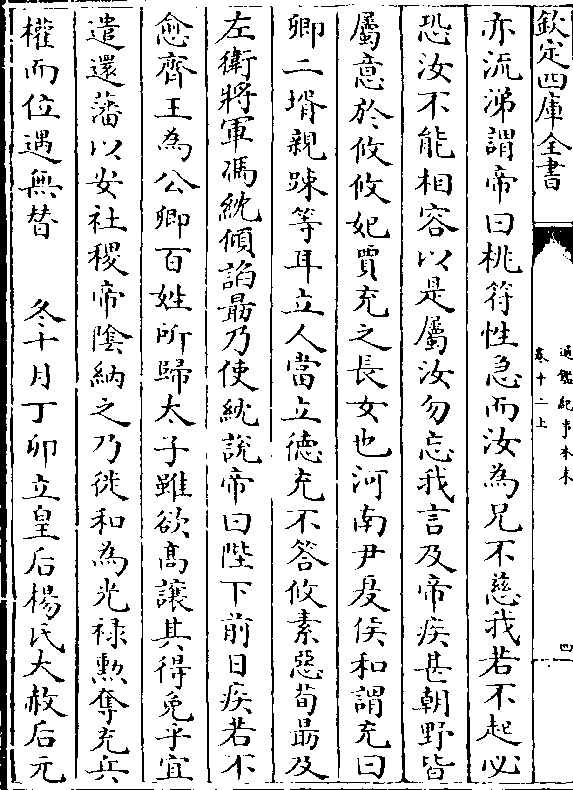 欽定四庫全書
通鑑紀事本末
卷十二上
四
亦流涕謂帝曰桃符性急而汝為兄不慈我若不起必
恐汝不能相容以是屬汝勿忘我言及帝疾甚朝野皆
屬意於攸攸妃賈充之長女也河南尹夏侯和謂充曰
卿二壻親踈等耳立人當立德充不答攸素惡荀勗及
左衛將軍馮紞傾諂勗乃使紞說帝曰陛下前日疾若不
愈齊王為公卿百姓所歸太子雖欲髙讓其得免乎宜
遣還藩以安社稷帝陰納之乃徙和為光禄勲奪充兵
權而位遇無替 冬十月丁卯立皇后楊氏大赦后元